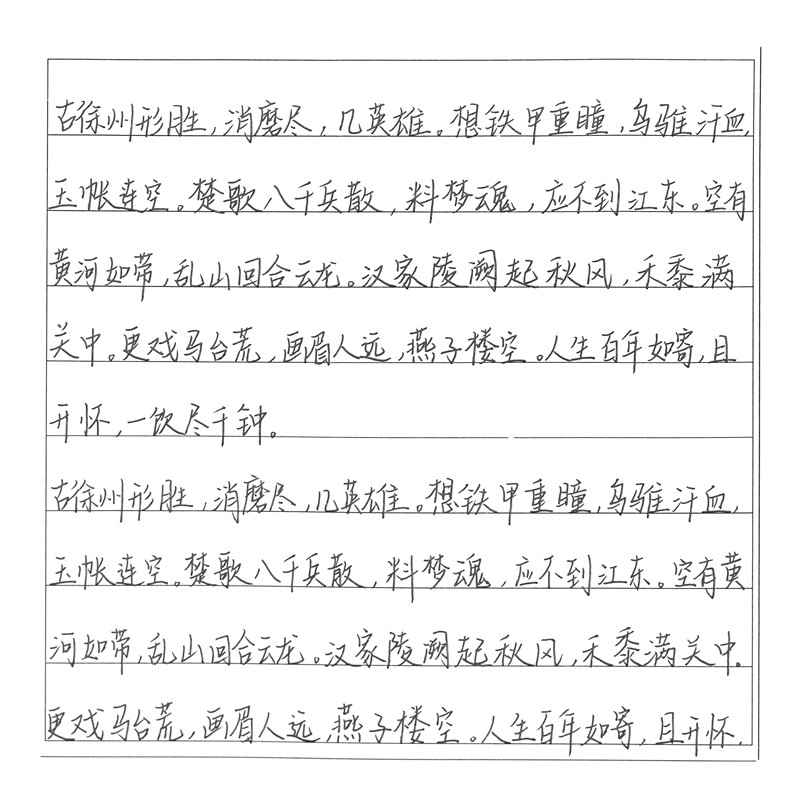 古徐州形胜，消磨尽，几英雄。想铁甲重瞳，乌骓汗血，
玉帐连空。楚歌八千兵散，料梦魂，应不到江东。空有
黄河如带，乱山回合云龙。汉家陵阙起秋风，禾黍满
关中。更戏马台荒，画眉人远，燕子楼空。人生百年如寄，且
开怀，一饮尽千钟。
古徐州形胜，消磨尽，几英雄。想铁甲重瞳，乌骓汗血，
玉帐连空。楚歌八千兵散，料梦魂，应不到江东。空有黄
河如带，乱山回合云龙。汉家陵阙起秋风，禾黍满关中。
更戏马台荒，画眉人远，燕子楼空。人生百年如寄，且开怀，